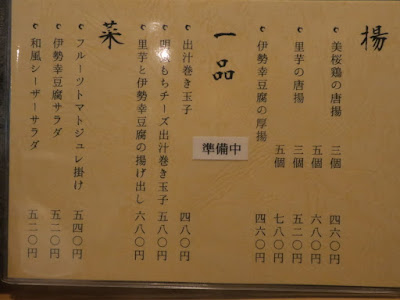 揚
美桜鶏の唐揚 三個 四六〇円
五個 六八〇円
里芋の唐揚 三個 五二〇円
五個 七八〇円
伊勢幸豆腐の厚揚 四六〇円
一品
準備中
出汁巻き玉子 四八〇円
明 もちチーズ出汁巻き玉子 五八〇円
里芋と伊勢幸豆腐の揚げ出し 六八〇円
菜
フルーツトマトジュレ掛け 五四〇円
伊勢幸豆腐サラダ 五二〇円
和風シーザーサラダ 五二〇円